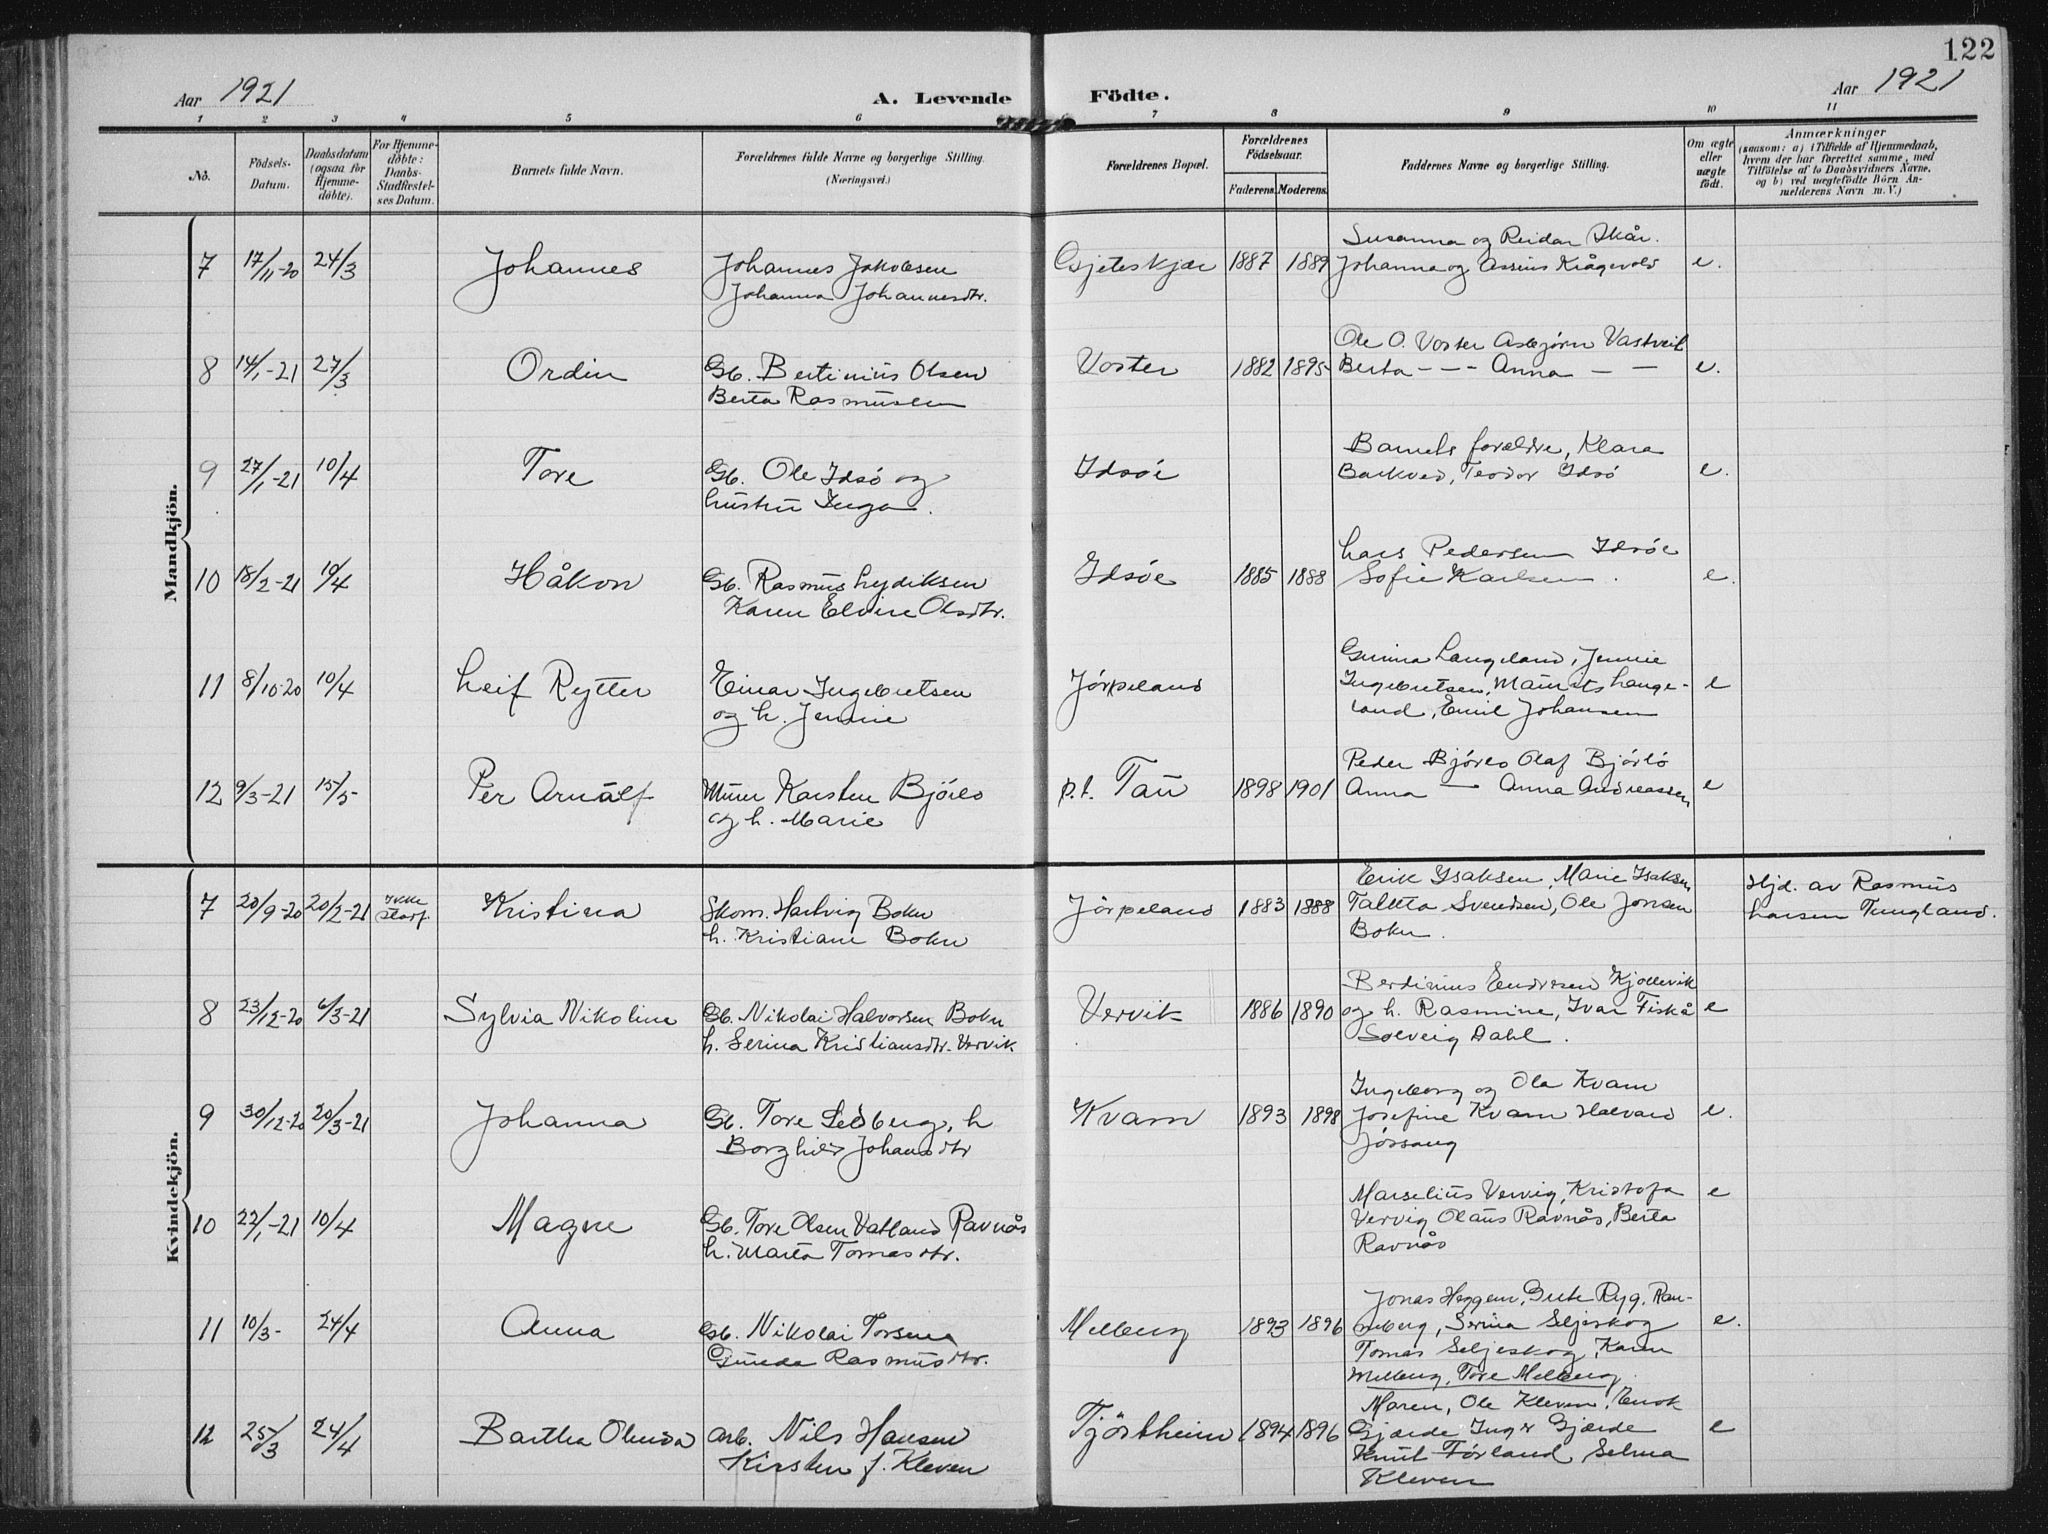 122
Aar 1921 A. Levende Födte. Aar 1921
1 2 3 4 5 6 7 8 9 10 11
No.
Födsels-Datum.
Daabsdatum (ogsaa for Hjemme-døbte).
For Hjemme-døbte: Daabs-Stadfæstel-ses Datum.
Barnets fulde Navn.
Forældrenes fulde Navne og borgerlige Stilling.
(Næringsvei.)
Forældrenes Bopæl.
Forældrenes Födselsaar.
Faderens. Moderens.
Faddernes Navne og borgerlige Stilling.
Om ægte eller uægte født.
Anmærkninger
(saasom: a) i Tilfælde af Hjemmedaab,
hvem der har forrettet samme, med
Tilföielse af to Daabsvidners Navne,
og b) ved uægtefödte Börn An-
melderens Navn m. V.)
Mandkjön.
Susanna og Reidar Skår.
7 17/11-20 24/3 Johannes Johannes Jakobsen 1887 1889 Johanna og e.
Johanna Johannesdtr.
Ole O. Voster Asbjørn Vastveit
8 14/1-21 27/3 Ordin Gb. Bertinius Olsen Voster 1882 1895 Berta - - - Anna - - e.
Berta Rasmussen
Barnets forældre, Klara
9 27/1-21 10/4 Tore Gb. Ole Idsö og Idsöe Barkved, Teodor Idsö e.
hustru Inga.
Lars Pedersen Idsöe
10 18/2-21 10/4 Håkon Gb. Rasmus Lydiksen Idsøe 1885 1888 Sofie Karlsen. e.
Karen Elvine Olsdtr.
Gunna Langeland, Jennie
11 8/10-20 10/4 Leif Rytter Einar Ingebretsen Jörpeland Ingebretsen, Maurits Lange- e
og h. Jennie land, Emil Johansen
Peder Bjørlo Olaf Bjørlö
12 9/3-21 15/5- Per Arnulf Murer Karsten Bjölo p.t. Tau 1898 1901 Anna — Anna Andreassen e
og h. Marie
Kvindekjön.
Erik Isaksen, Marie Isaksen
7 20/9-20 20/2-21 Ikke Kristina Skom. Hartvig Bokn Jörpeland 1883 1888 Svendsen, Ole Jonsen Hjd. av Rasmus
h. Kristiane Bokn Bokn. Larsen Tungland.
Berdinius Endresen Kjölevik
8 23/12-20 6/3-21 Sylvia Nikoline Gb. Nikolai Halvorsen Bokn Vervik 1886 1890 og h. Rasmine, Ivar Fiskå e
h. Serina Kristiansdtr. Vervik Solveig Dahl.
Ingeborg og Ola Kvam
9 30/12-20 20/3-21 Johanna Gb. Tore Sedberg, h Kvam 1893 1898 Josefine Kvam Halvard e.
Borghild Johansdtr Jössang
Marselius Vervig, Kristofa e
10 22/1-21 10/4 Magne Gb. Tore Olsen Vatland Ravnås Vervig Olaus Ravnås, Berta
h. Marta Tomasdtr. Ravnås
Jonas Heggem, Gute Ryg, Ran-
11 10/3- 24/4 Anna Gb. Nikolai Torsen Melberg 1893 1896 neberg, Serina Seljeskog e.
Gunda Rasmusdtr. Tomas Seljeskog, Karen
Melberg, Tore Melberg.
Maren, Ole Kleven, Enok
12 25/3 24/4 Bartha Olivia Arb. Nils Hansen Tjöstheim 1894 1896 Gjærde Inger Gjærde e
Kirsten f. Kleven Knut Førland Selma
Kleven